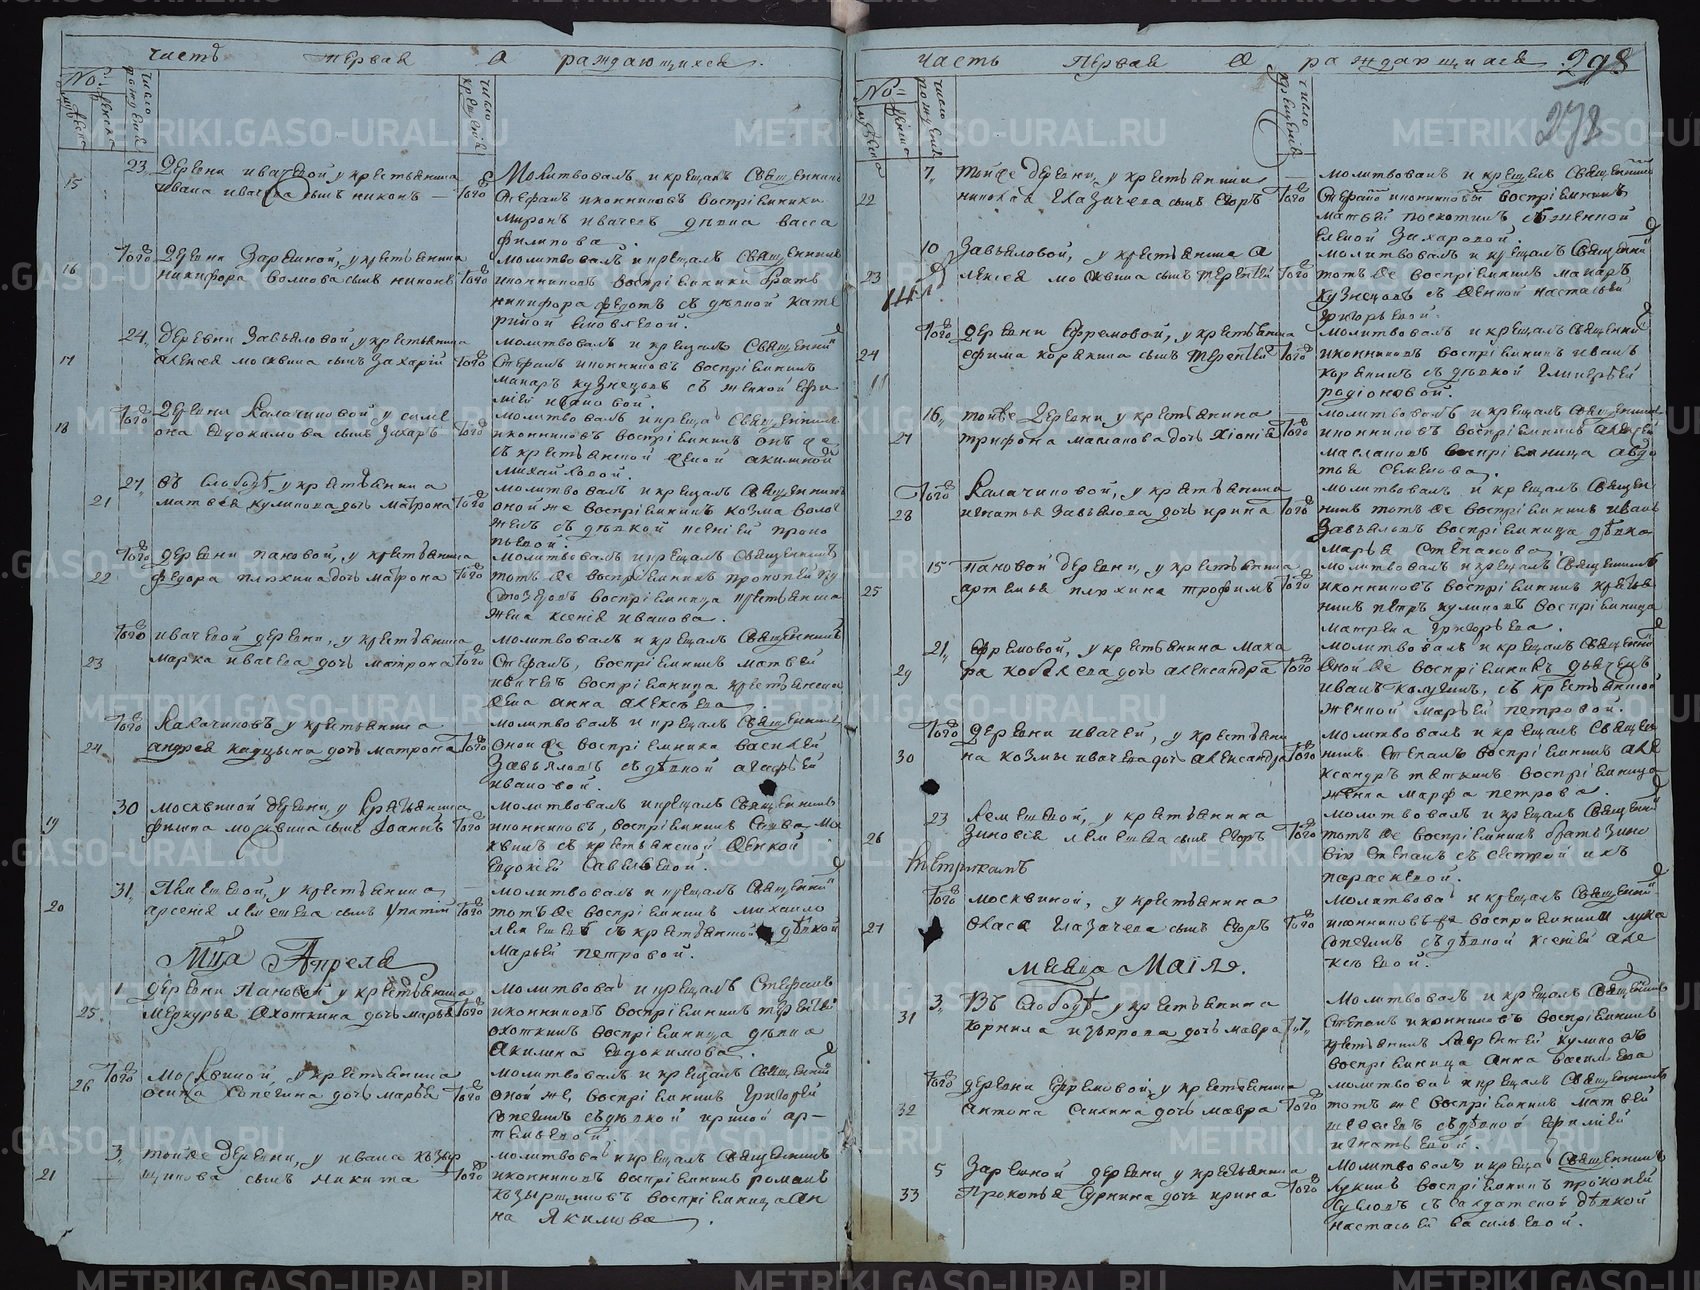 часть первая О раждающихся.
No:
мужеска
женска
число рождения
число крещения
15
23
Деревни ивачевой у крестьянина
ивана ивачева сынъ никонъ
Того
Молитвовалъ и крещалъ Священникъ
Стефанъ иконниковъ воспріемники
миронъ ивачевъ девка васса
филипова.
16
Того
Деревни Зарешной, у крестьянина
никифора волкова сынъ никонъ
Того
молитвовалъ и крещалъ Священникъ
иконниковъ воспріемники братъ
никифора федотъ съ девкой кате
риной
17
24
деревни Завьяловой у крестьянина
алексея москвина сынъ Захарій
Того
молитвовалъ и крещалъ Священни
Стефанъ иконниковъ воспріемникъ
макаръ кузнецовъ съ женкой ефи
міей
18
Того
Деревни Калачиковой у симе
она евдокимова сынъ Захаръ
Того
молитвовалъ и крещалъ Священникъ
иконниковъ воспріемникъ онъ же
съ крестьянской женой акилиной
михайловой.
21
27
Въ Слободе у крестьянина
матвея куликова дочь матрона
Того
молитвовалъ и крещалъ Священникъ
оной же воспріемникъ козма воло
жень съ девкой
пьевой.
22
Того
деревни пановой, у крестьянина
федора плюхина дочь матрона
Того
молитвовалъ и крещалъ Священникъ
тотъ же воспріемникъ прокопей
воспріемница крестьянина
жена ксенія иванова.
23
Того
ивачевой деревни, у крестьянина
марка ивачева дочь матрона
Того
молитвовалъ и крещалъ Священникъ
Стефанъ, воспріемникъ матвей
ивачевъ воспріемница крестьянска
жена анна алексеева
24
Того
Калачиковъ у крестьянина
андрея кадцына дочь матрона
Того
молитвовалъ и крещалъ Священникъ
оной же воспріемники василей
Завьяловъ съ девкой агафьей
ивановой.
19
30
москвиной деревни, у крестьянина
филипа москвина сынъ Іоаннъ
Того
молитвовалъ и крещалъ Священникъ
иконниковъ, воспріемникъ Савва мо
квинъ съ крестьянской женкой
евдокіей Савельевой.
20
31
Лемешевой, у крестьянина
арсенія лемешева сынъ Упатій
Того
молитвовалъ и крещалъ Священни
тотъ же воспріемникъ михайло
лемешевъ съ крестьянской девкой
марьей петровой.
Мца Апреля
25
1
деревни Пановой у крестьянина
меркурья Охоткина дочь марья
Того
молитвова и крещалъ Стефанъ
иконниковъ воспріемникъ
охоткинъ воспріемница девка
акилина евдокимова.
26
Того
москвиной, у крестьянина
осипа Сопегина дочь марья
Того
молитвовалъ и крещалъ Священни
оной же, воспріемникъ григорей
Сопегинъ съ девкой ириной ар-
темьевой
21
3
тойже деревни, у ивана козыр
щикова сынъ никита
Того
молитвова и крещалъ Священникъ
иконниковъ воспріемникъ романъ
козырщиковъ воспріемница ан
на Якимова.
часть первая О раждающихся
298
278
No:
мужеска
женска
число рождения
число крещения
22
7
тойже деревни, у крестьянина
николая Глазачева сынъ Егоръ
Того
молитвовалъ и крещалъ Священникъ
Стефанъ иконниковъ воспріемникъ
матвей поскотинъ съ женкой
еленой Захаровой.
23
10
Завьяловой, у крестьянина а
лексея москвина сынъ терентей
Того
молитвовалъ и крещалъ Священни
тотъ же воспріемникъ макаръ
кузнецовъ съ женкой настасьей
григорьевой.
24
Того
деревни Ефремовой, у крестьянина
ефима корякина сынъ терентей
Того
молитвовалъ и крещалъ Священни
иконниковъ воспріемникъ иванъ
корякинъ съ девкой гликерьей
родіоновой.
27
16
тойже деревни, у крестьянина
трифона масланова дочь Хіонія
Того
молитвовалъ и крещалъ Священникъ
иконниковъ воспріемникъ алексей
маслановъ воспріемница авдо
тья Семенова.
28
Того
Калачиковой, у крестьянина
игнатья Завьялова дочь ирина
Того
молитвовалъ и крещалъ Священ
никъ тотъ же воспріемникъ иванъ
Завьяловъ воспріемница девка
марья Степанова
25
15
пановой деревни, у крестьянина
артемья плюхина трофимъ
Того
молитвовалъ и крещалъ Священникъ
иконниковъ воспріемникъ крестья
нинъ петръ куликовъ воспріемница
матрена григорьева.
29
21
Ефремовой, у крестьянина мака
ра кобелева дочь александра
Того
молитвовалъ и крещалъ Священни
оной же воспріемникъ
иванъ, съ крестьянской
женкой марьей петровой.
30
Того
Деревни ивачей, у крестьяни
на козмы ивачева дочь александра
Того
молитвовалъ и крещалъ Священ
никъ Стефанъ воспріемникъ але
ксандръ тяткинъ воспріемница
женка марфа петрова.
26
23
Лемешевой, у крестьянина
Зиновея лемешева сынъ Егоръ
Того
молитвовалъ и крещалъ Священни
тотъ же воспріемникъ братъ зино
вію Степанъ съ сестрой ихъ
параскевой.
27
Того
москвиной, у крестьянина
власа Глазачева сынъ Егоръ
Того
молитвова и крещалъ Священни
иконниковъ воспріемники лука
Сопегинъ съ девкой ксеніей але
ксеевой.
месяца Маія.
31
3
Въ Слободе у крестьянина
корнила дочь мавра
7
молитвовалъ и крещалъ Священникъ
Стефанъ иконниковъ воспріемникъ
крестьянинъ лаврентей куликовъ
воспріемница анна васильева
32
Того
деревни Ефремовой, у крестьянина
антона Силина дочь мавра
Того
молитвова и крещалъ Священникъ
тотъ же воспріемникъ матвей
съ девкой ефиміей
игнатьевой.
33
5
Зарешной деревни у крестьянина
Прокопья Суркина дочь ирина
Того
молитвовалъ и креща Священникъ
лукинъ воспріемникъ прокопей
съ салдатской девкой
настасьей васильевой.